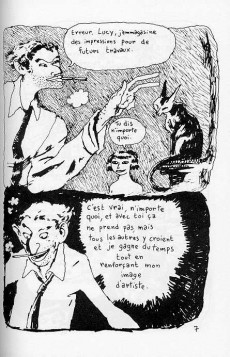 Erreur, Lucy, j'emmagasine
des impressions pour de
futurs travaux.
Tu dis
n'importe
quoi.
C'est vrai, n'importe
quoi, et avec toi ça
ne prend pas, mais
tous les autres y croient
et je gagne du temps
tout en
renforçant mon
image
d'artiste.
7